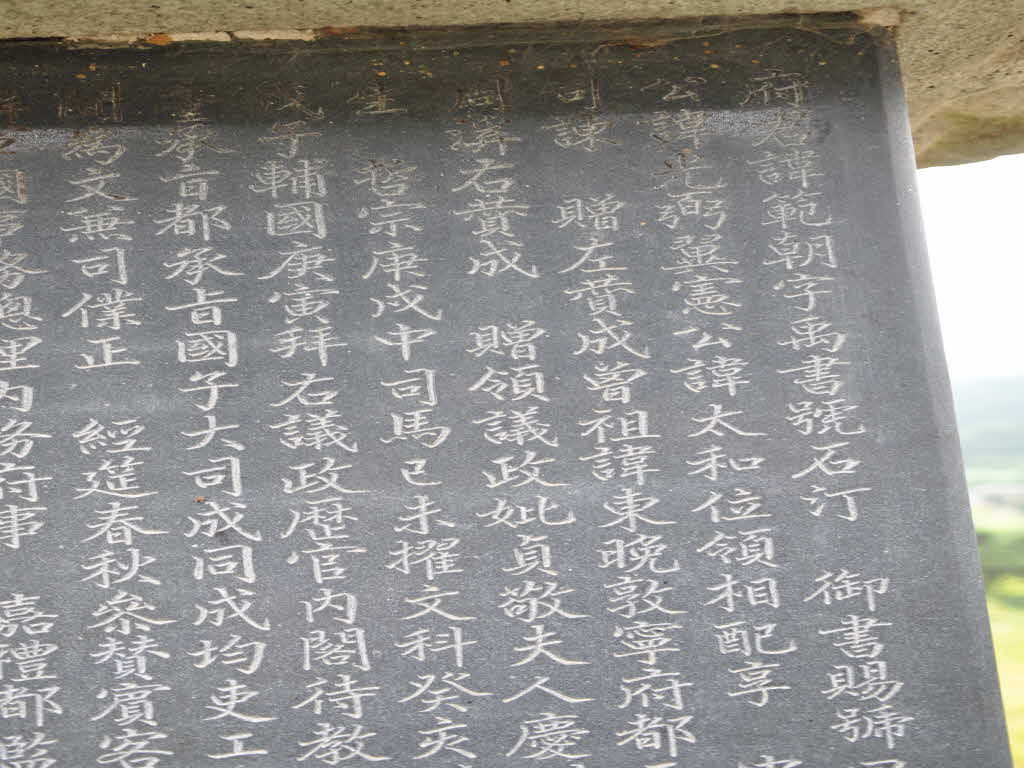 府君諱範朝字禹書號石汀 御書賜號
公諱翼憲公諱太和位領相配享
司諫 贈左贊成曾祖諱東晩敦寧府都
右贊成 贈領議政妣貞敬夫人慶
生 哲宗庚戌中司馬己未擢文科癸亥
輔國庚寅拜右議政歷官內閣待教
承旨都承旨國子大司成同成均吏工
司僕正 經筵春秋參贊賓客
總理內務府事 嘉禮都監